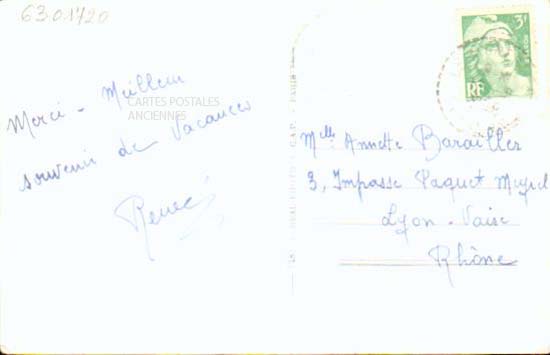 63.01420
Merci - Meilleur
souvenir de Vacances
Renée
CARTES POSTALES
ANCIENNES
3F
RF
Mlle Annette Barailler
3, Impasse Paquet
Lyon - Vaise
Rhône